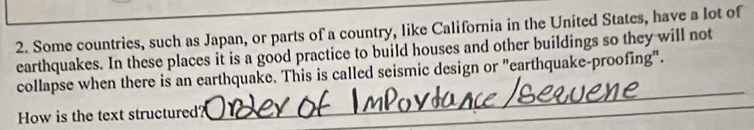 2. Some countries, such as Japan, or parts of a country, like California in the United States, have a lot of
earthquakes. In these places it is a good practice to build houses and other buildings so they will not
collapse when there is an earthquake. This is called seismic design or "earthquake-proofing".
How is the text structured? Order of Importance /Seqvene